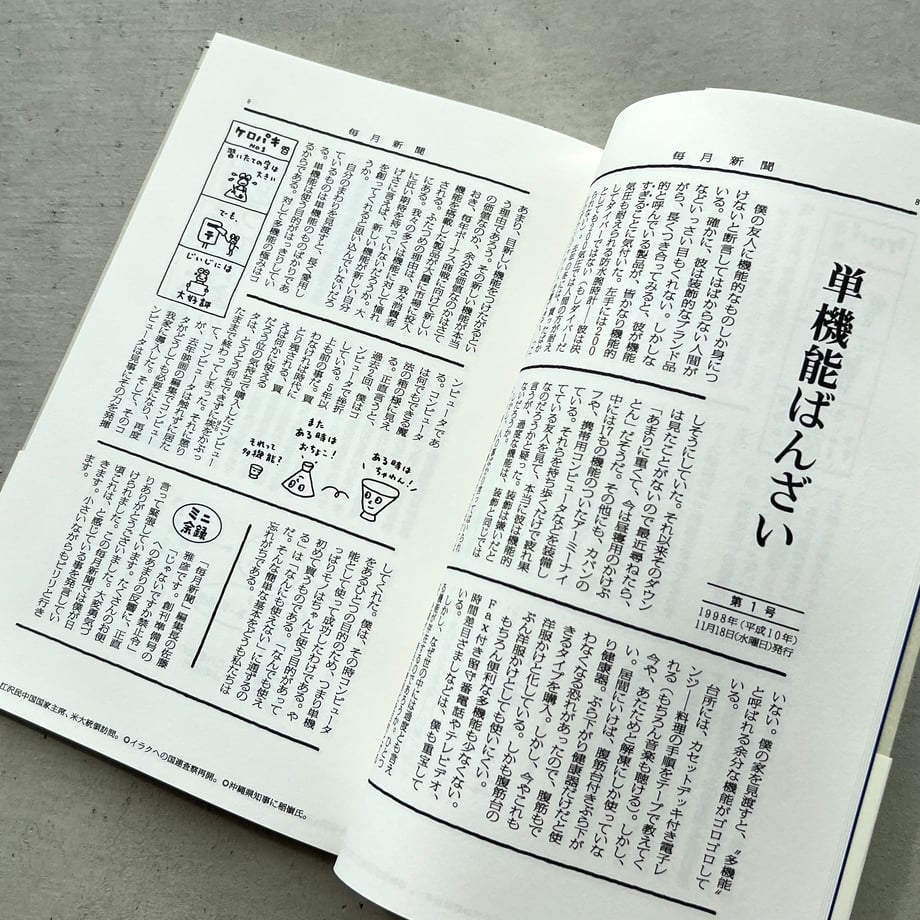 8
毎月新聞
単機能ばんざい
第1号
1998年(平成10年)
11月18日(水曜日)発行
僕の友人に機能的なものしか身につ
けないと断言してはばからない人間が
いる。確かに、彼は装飾的なブランド品
などいっさい目もくれない。しかしな
がら、長くつき合ってみると、彼が機能
的と呼んでいる製品が、皆かなり機能的
すぎることに気付いた。左手には200
気圧も耐えられる防水腕時計――彼は決
してダイバーではない(もしダイバーだった
しそうにしていた。それ以来そのダウン
は見たことがないので最近尋ねたら、
「あまりに重くて、今は昼寝用のかけぶ
とん」だそうだ。その他にも、カバンの
中には17もの機能のついたアーミーナイ
フや、携帯用コンピュータなどを装備し
ている。それらを持ち歩くだけで疲れ果
てている友人を見て、本当に彼は機能的
なのだろうかと疑った。
言うが、過度な機能は、装飾と同じでは
いない。僕の家を見渡すと、〝多機能〟
と呼ばれる余分な機能がゴロゴロして
いる。
台所には、カセットデッキ付き電子レ
ンジ――料理の手順をテープで教えてく
れる(もちろん音楽も聴ける)。しかし、
今や、あたためと解凍にしか使っていな
い。居間にいけば、腹筋台付きぶら下が
り健康器。ぶら下がり健康器だけだと使
わなくなる恐れがあったので、腹筋もで
きるタイプを購入。しかし、今やこれも
洋服かけと化している。しかも腹筋台の
ぶん洋服かけとしても使いにくい。
もちろん便利な多機能も少なくない。
Fax付き留守番電話やテレビデオ、
時間差目ざましなどは、僕も重宝して
いる。
9
毎月新聞
あまり、目新しい機能をつけたがるとい
う理由でもあろう。その新しい機能が本当
の価値なのか、余分な価値なのかはさて
おき、毎年ボーナス商戦に向けて、新しい
機能を搭載した製品が大量に市場に投入
される。ふたつめの理由は、我々消費者
にある。我々の多くは機能に対して憧れ
に近い期待を持っているのである。大
げさに言えば、新しい機能が新しい自分
を創ってくれると思い込んでいないだろ
うか。
自分のまわりを見渡すと、長く愛用し
ているものは単機能のものばかりであ
る。単機能は使う目的がはっきりしてい
るからである。対して多機能の極みはコ
ケロパキ
NO.1
習いたての字は
大きい
でも、
じいじには
大好評
ンピュータであ
る。コンピュータ
は何でもできる魔
法の箱の様に見え
る。正直言うと、
過去2回、僕はコ
ンピュータで挫折
している。15年以
上も前の事だ。買
わなければ時代に
とり残される、買
えば何かに使える
だろう位の気持ちで購入したコンピュー
タは、とうとう何もできずに埃をかぶっ
たままで終わってしまった。それに懲り
て、コンピュータには触れずに居た
が、去年、映画の編集でコンピュー
タがどうしても必要になり、再度
我家に導入した。そして、そのコ
ンピュータは見事にその力を発揮
ある時は
ちゃわん!
また
ある時は
おちょこ!
それって
多機能?
してくれた。僕は、その時コンピュータ
をあるひとつの目的のため、つまり単機
能として使って成功したわけである。や
っぱりモノはちゃんと使う目的があって
初めて買うべきだ。「なんでも使え
る」は「なんにも使えない」と同するの
だ。そんな簡単な基本をどうも私たちは
忘れがちである。
ミニ
余録
「毎月新聞」編集長の佐藤
雅彦です。創刊準備号の
「じゃないですか禁止令」
へのあまりの反響に、正直
言って緊張しています。たくさんのお便
りありがとうございました。大変勇気づ
けられました。この毎月新聞では僕が日
頃これは、と感じている事を発言してい
きます。小さいながらもピリリと行き
ます。
江沢民中国国家主席、米大統領訪問。○イラクへの国連査察再開。○沖縄県知事に稲嶺氏。